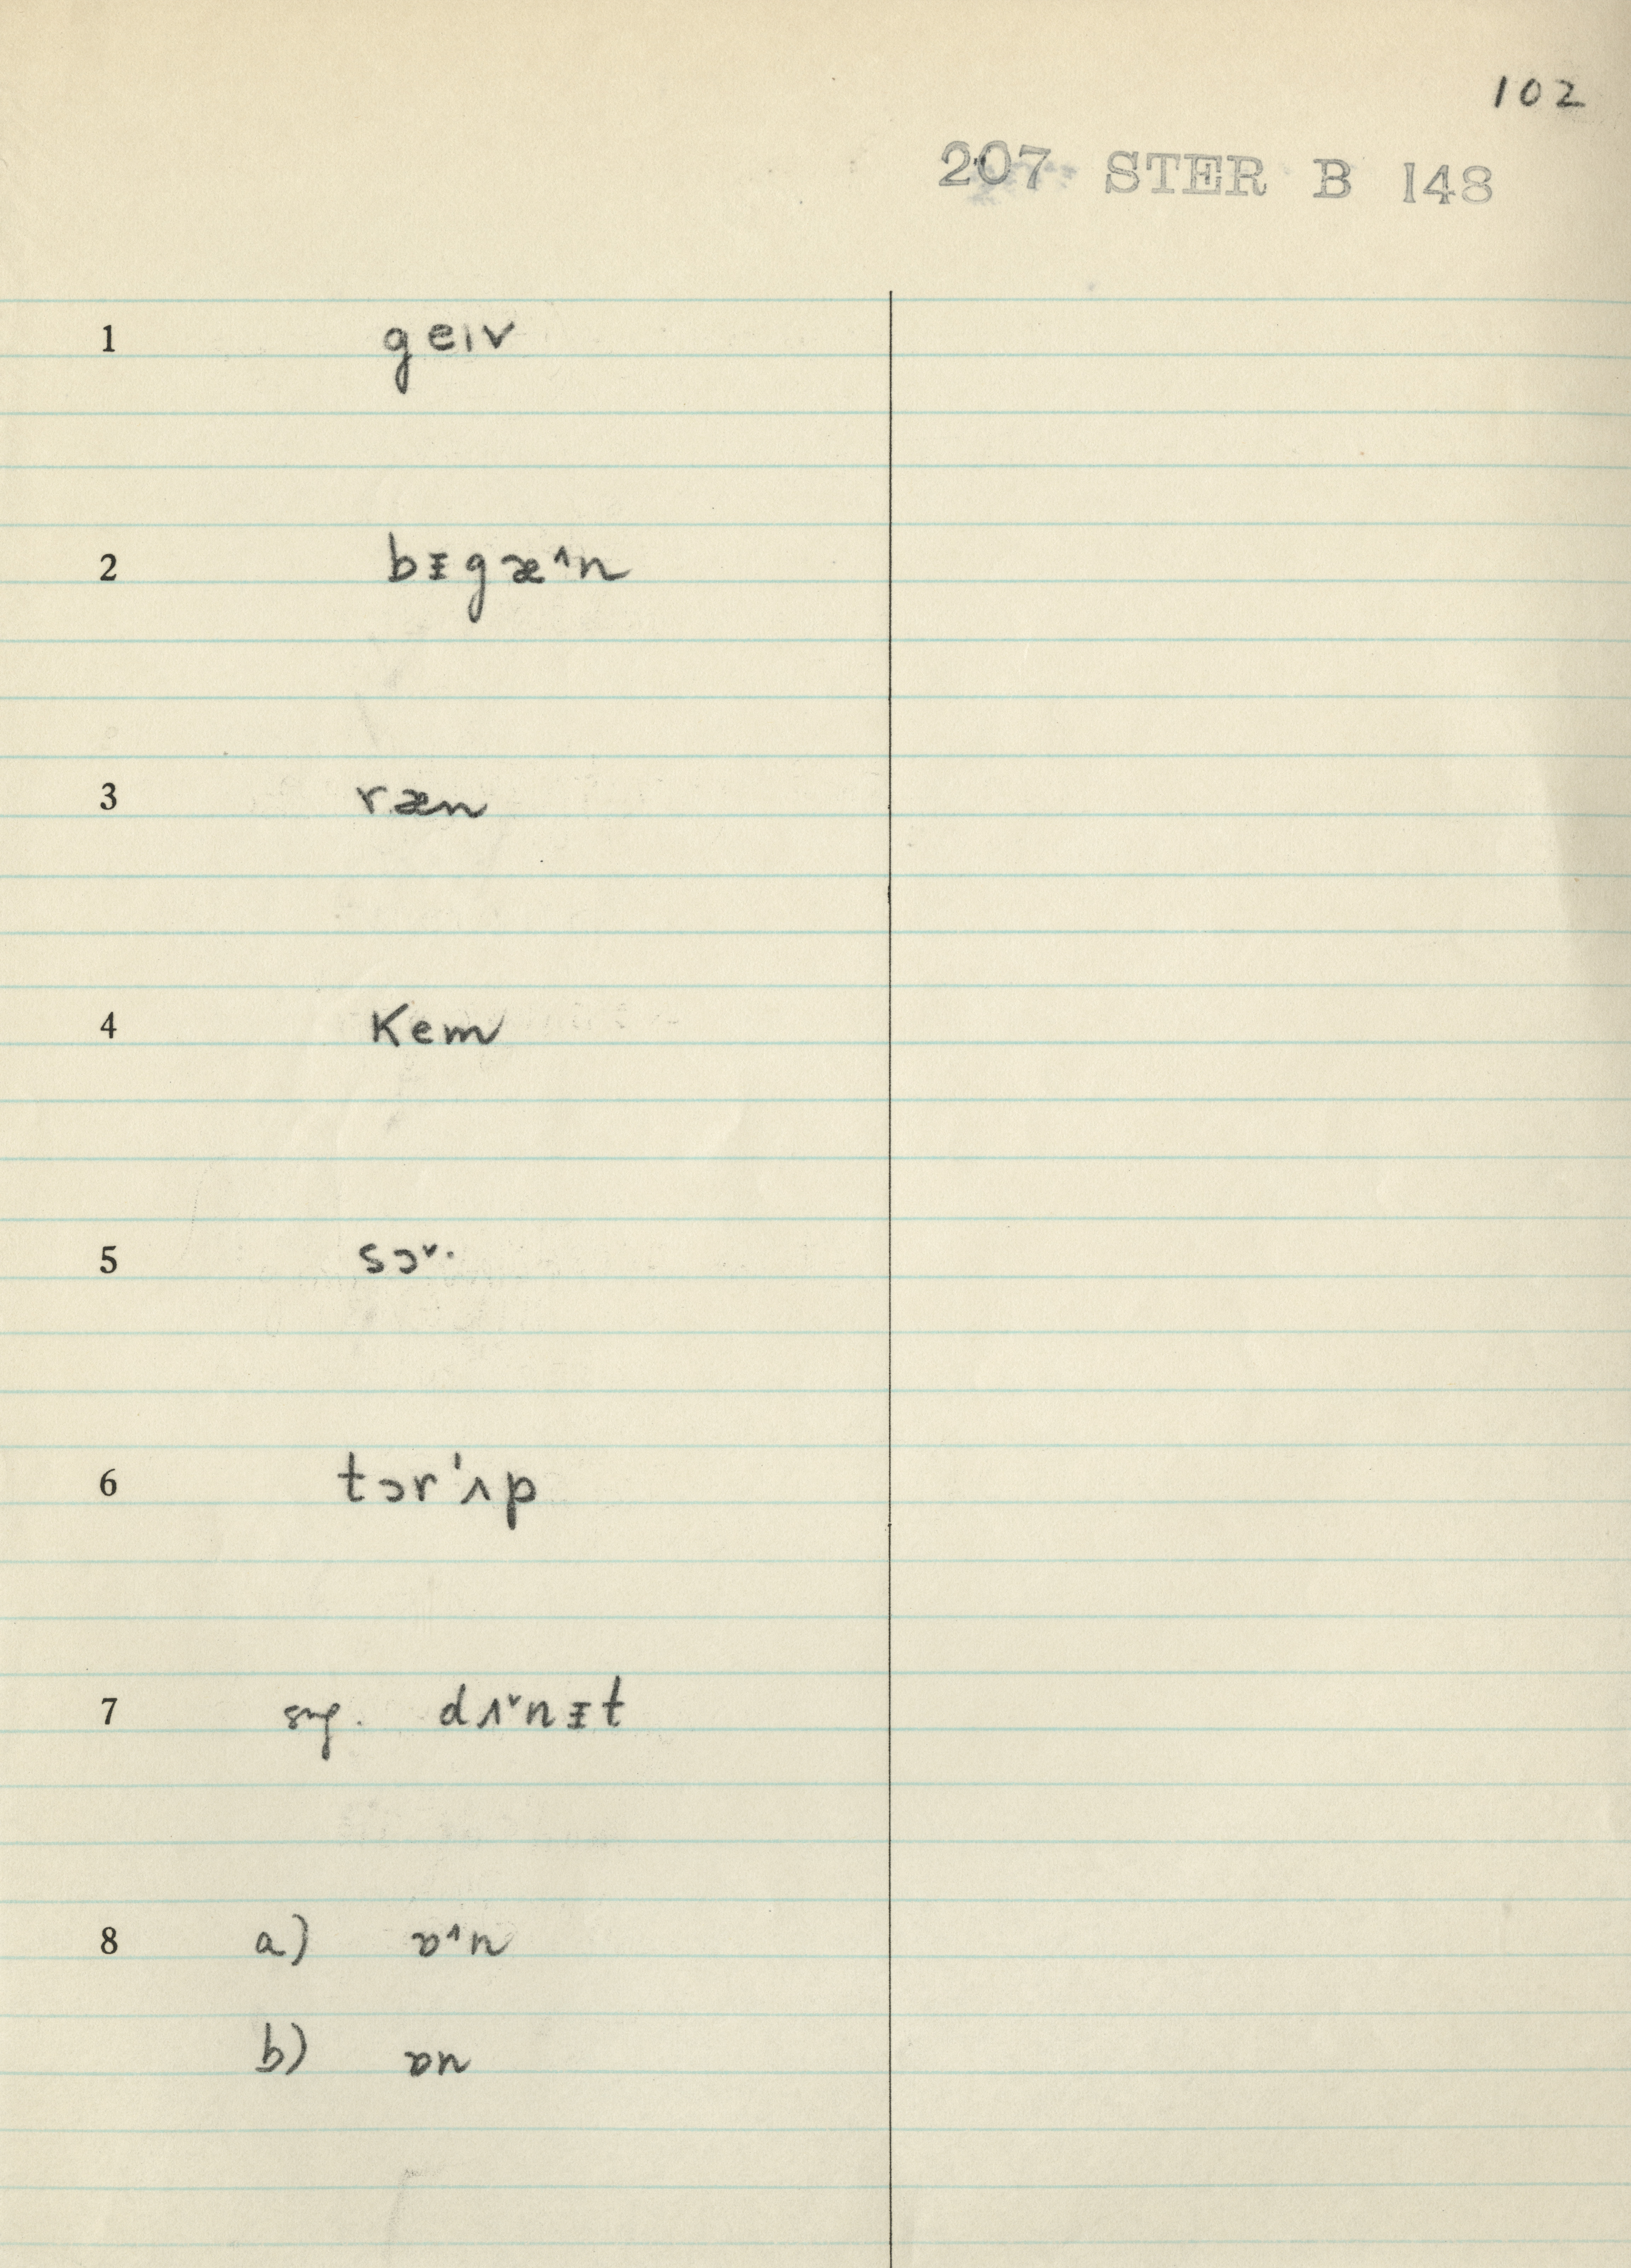 102
207 STER B 148
1 geıv
2 bᵻgæ˄n
3 ræn
4 Kem
5 sɔ˅·
6 tɔr'ʌp
7 sng. dʌ˅nᵻt
8 a) ɒ˄n
b) ɒn